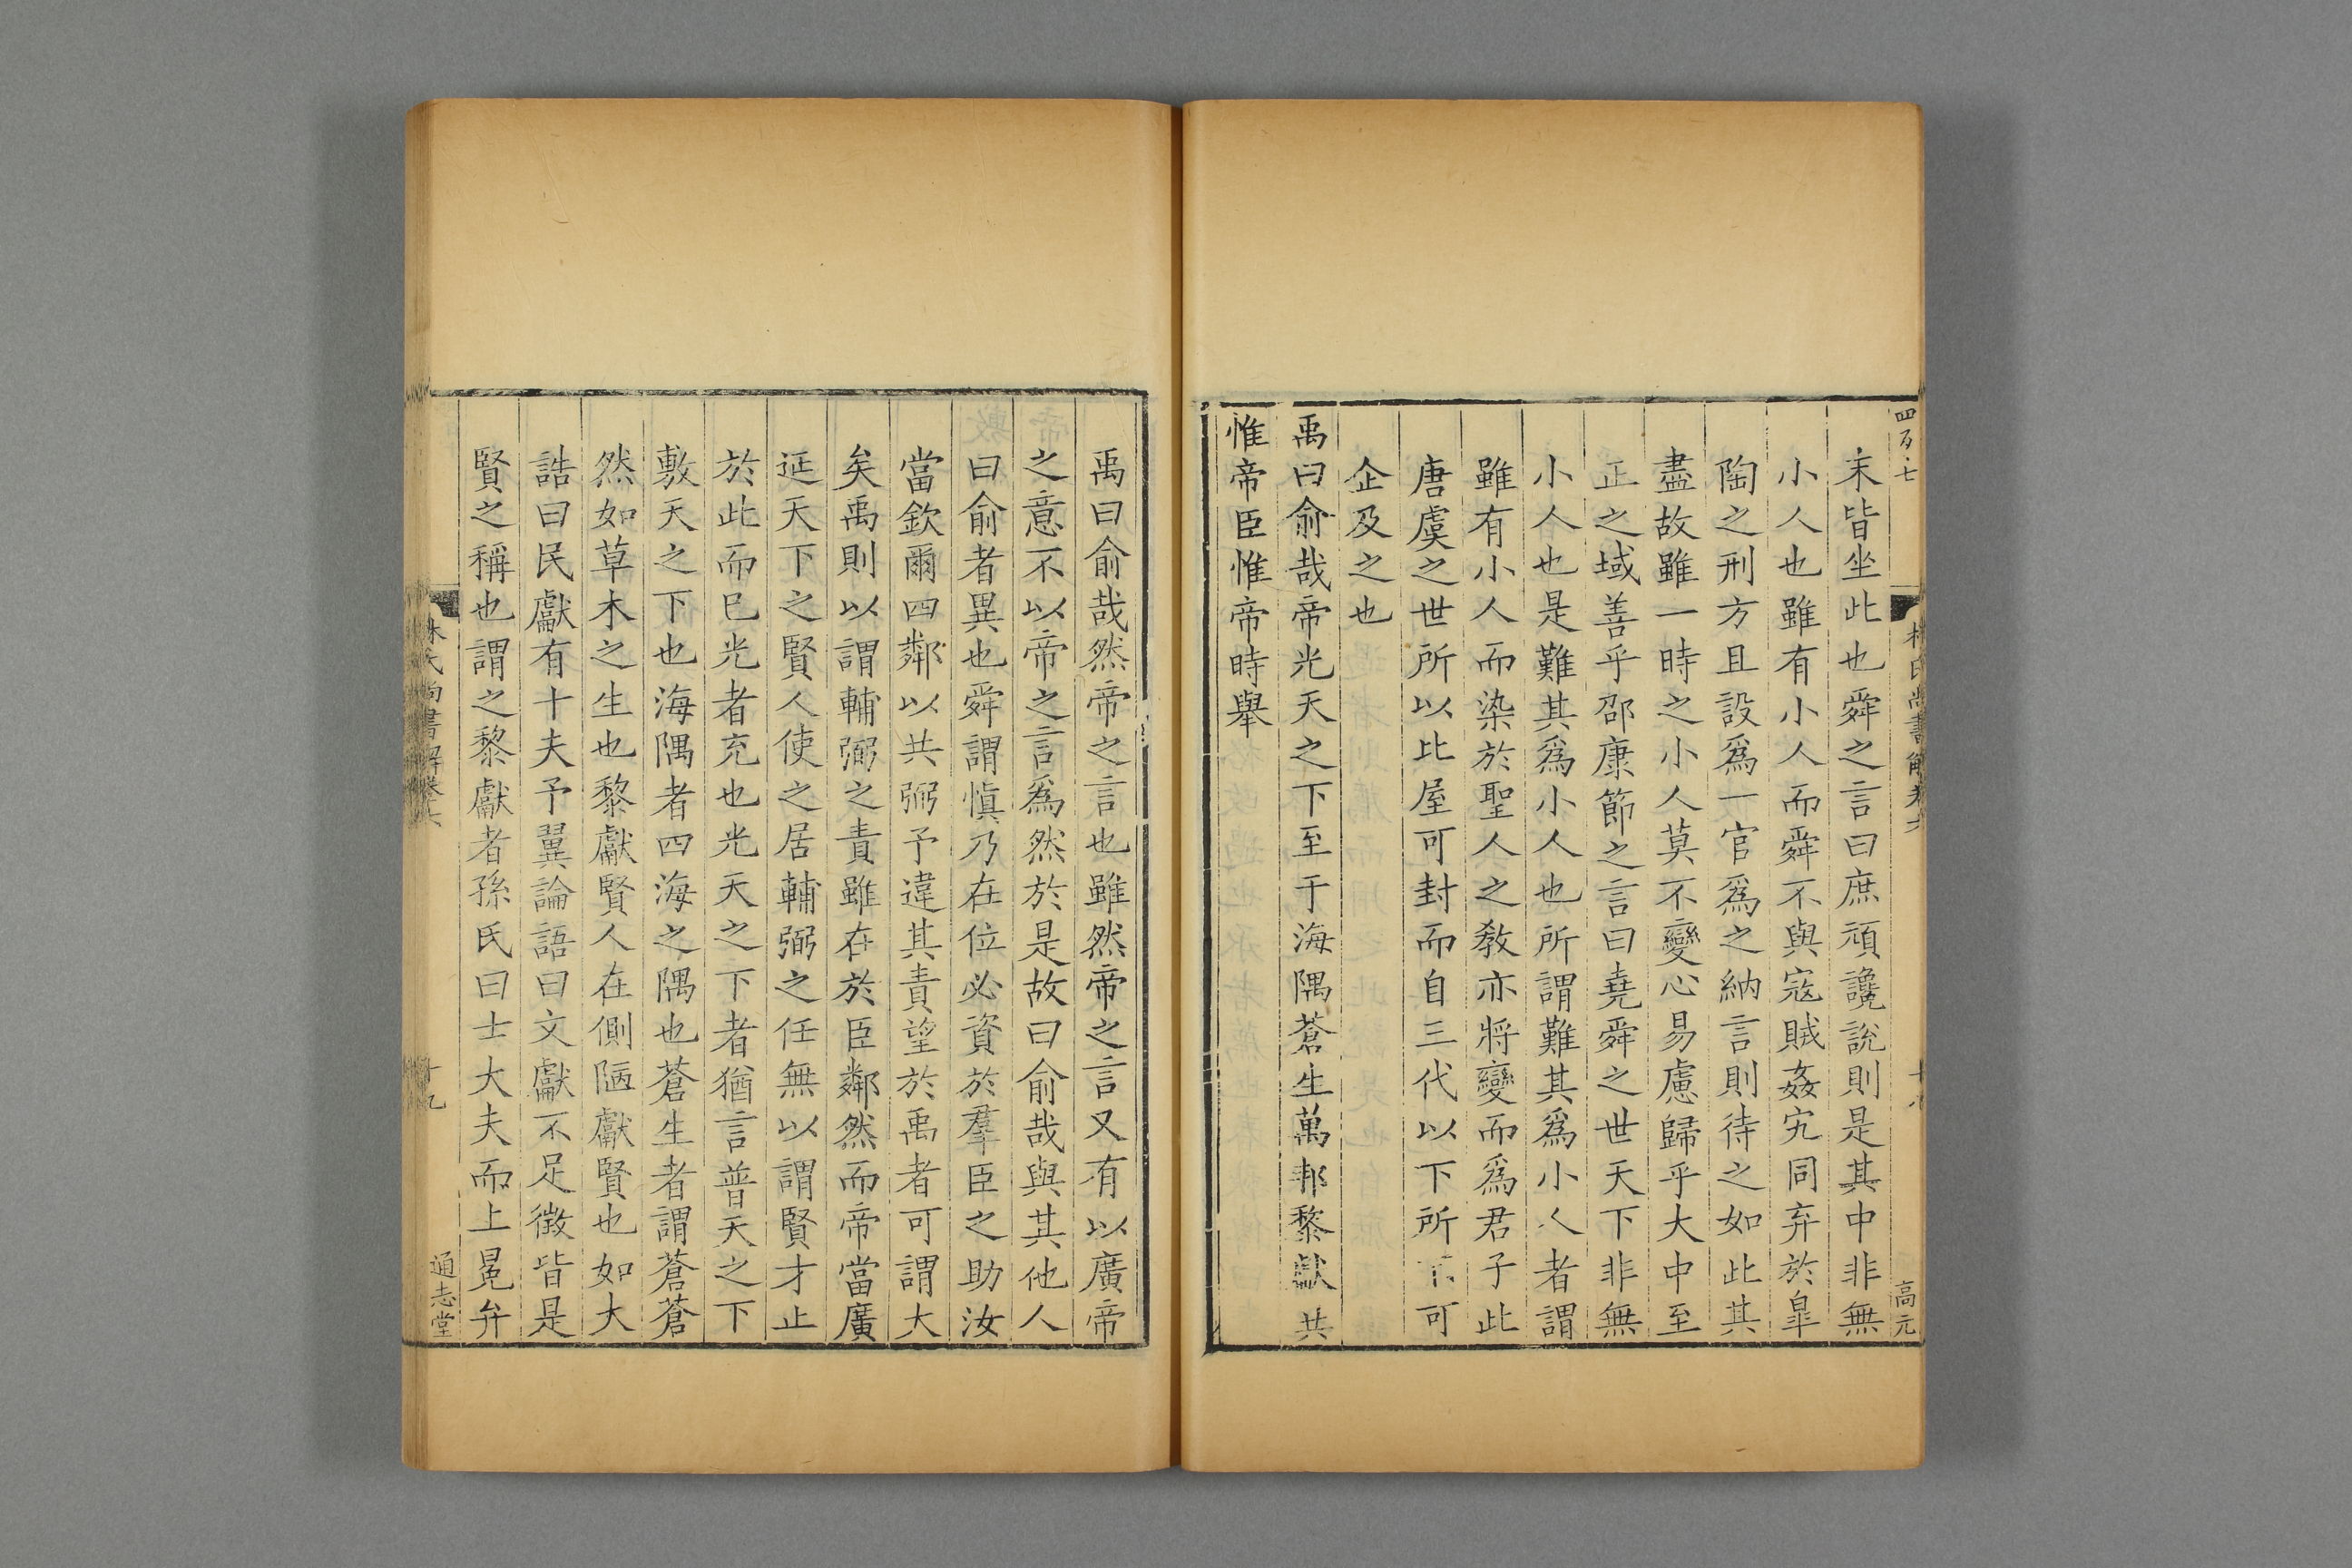 四百七
高元
末皆坐此也舜之言曰庶頑讒說則是其中非無
小人也雖有小人而舜不與寇賊姦宄同弃於臯
陶之刑方且設爲一官爲之納言則待之如此其
盡故雖一時之小人莫不變心易慮歸乎大中至
正之域善乎邵康節之言曰堯舜之世天下非無
小人也是難其爲小人也所謂難其爲小人者謂
雖有小人而染於聖人之敎亦將變而爲君子此
唐虞之世所以比屋可封而自三代以下所不可
企及之也
禹曰俞哉帝光天之下至于海隅蒼生萬邦黎獻共
惟帝臣惟帝時舉
禹曰俞哉然帝之言也雖然帝之言又有以廣帝
之意不以帝之言爲然於是故曰俞哉與其他人
曰俞者異也舜謂愼乃在位必資於羣臣之助汝
當欽爾四鄰以共弼予違其責望於禹者可謂大
矣禹則以謂輔弼之責雖在於臣鄰然而帝當廣
延天下之賢人使之居輔弼之任無以謂賢才止
於此而已光者充也光天之下者猶言普天之下
敷天之下也海隅者四海之隅也蒼生者謂蒼蒼
然如草木之生也黎獻賢人在側陋獻賢也如大
誥曰民獻有十夫予翼論語曰文獻不足徵皆是
賢之稱也謂之黎獻者孫氏曰士大夫而上冕弁
林氏尚書解卷六
十九
通志堂